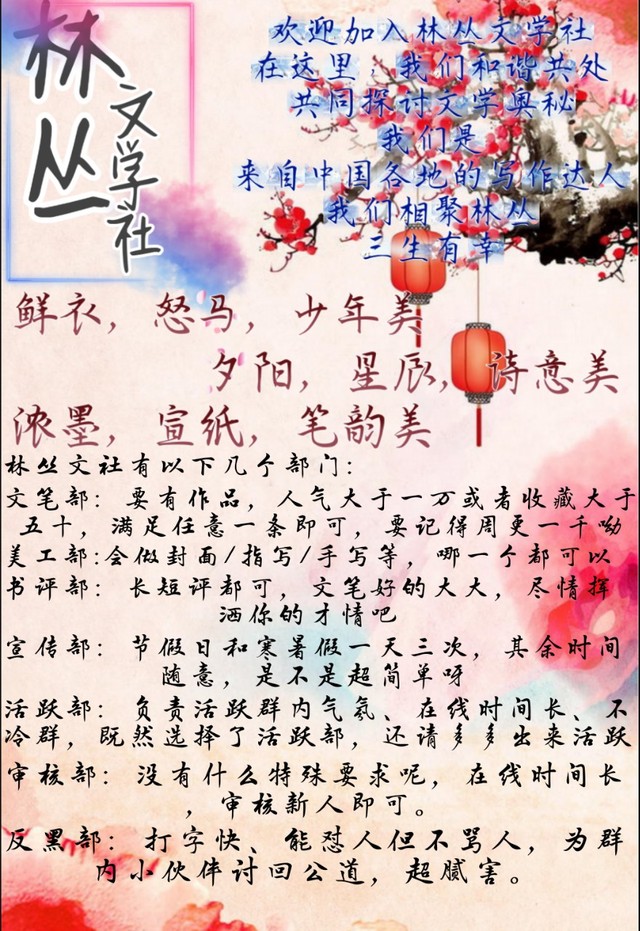 林丛
文学社
欢迎加入林丛文学社
在这里，我们和谐共处
共同探讨文学奥秘
我们是
来自中国各地的写作达人
我们相聚林丛
三生有幸
鲜衣，怒马，少年美
夕阳，星辰，诗意美
浓墨，宣纸，笔韵美
林丛文社有以下几个部门：
文笔部：要有作品，人气大于一万或者收藏大于
五十，满足任意一条即可，要记得周更一千呦
美工部：会做封面/指写/手写等，哪一个都可以
书评部：长短评都可，文笔好的大大，尽情挥
洒你的才情吧
宣传部：节假日和寒暑假一天三次，其余时间
随意，是不是超简单呀
活跃部：负责活跃群内气氛、在线时间长、不
冷群，既然选择了活跃部，还请多多出来活跃
审核部：没有什么特殊要求呢，在线时间长
，审核新人即可。
反黑部：打字快、能怼人但不骂人，为群
内小伙伴讨回公道，超腻害。